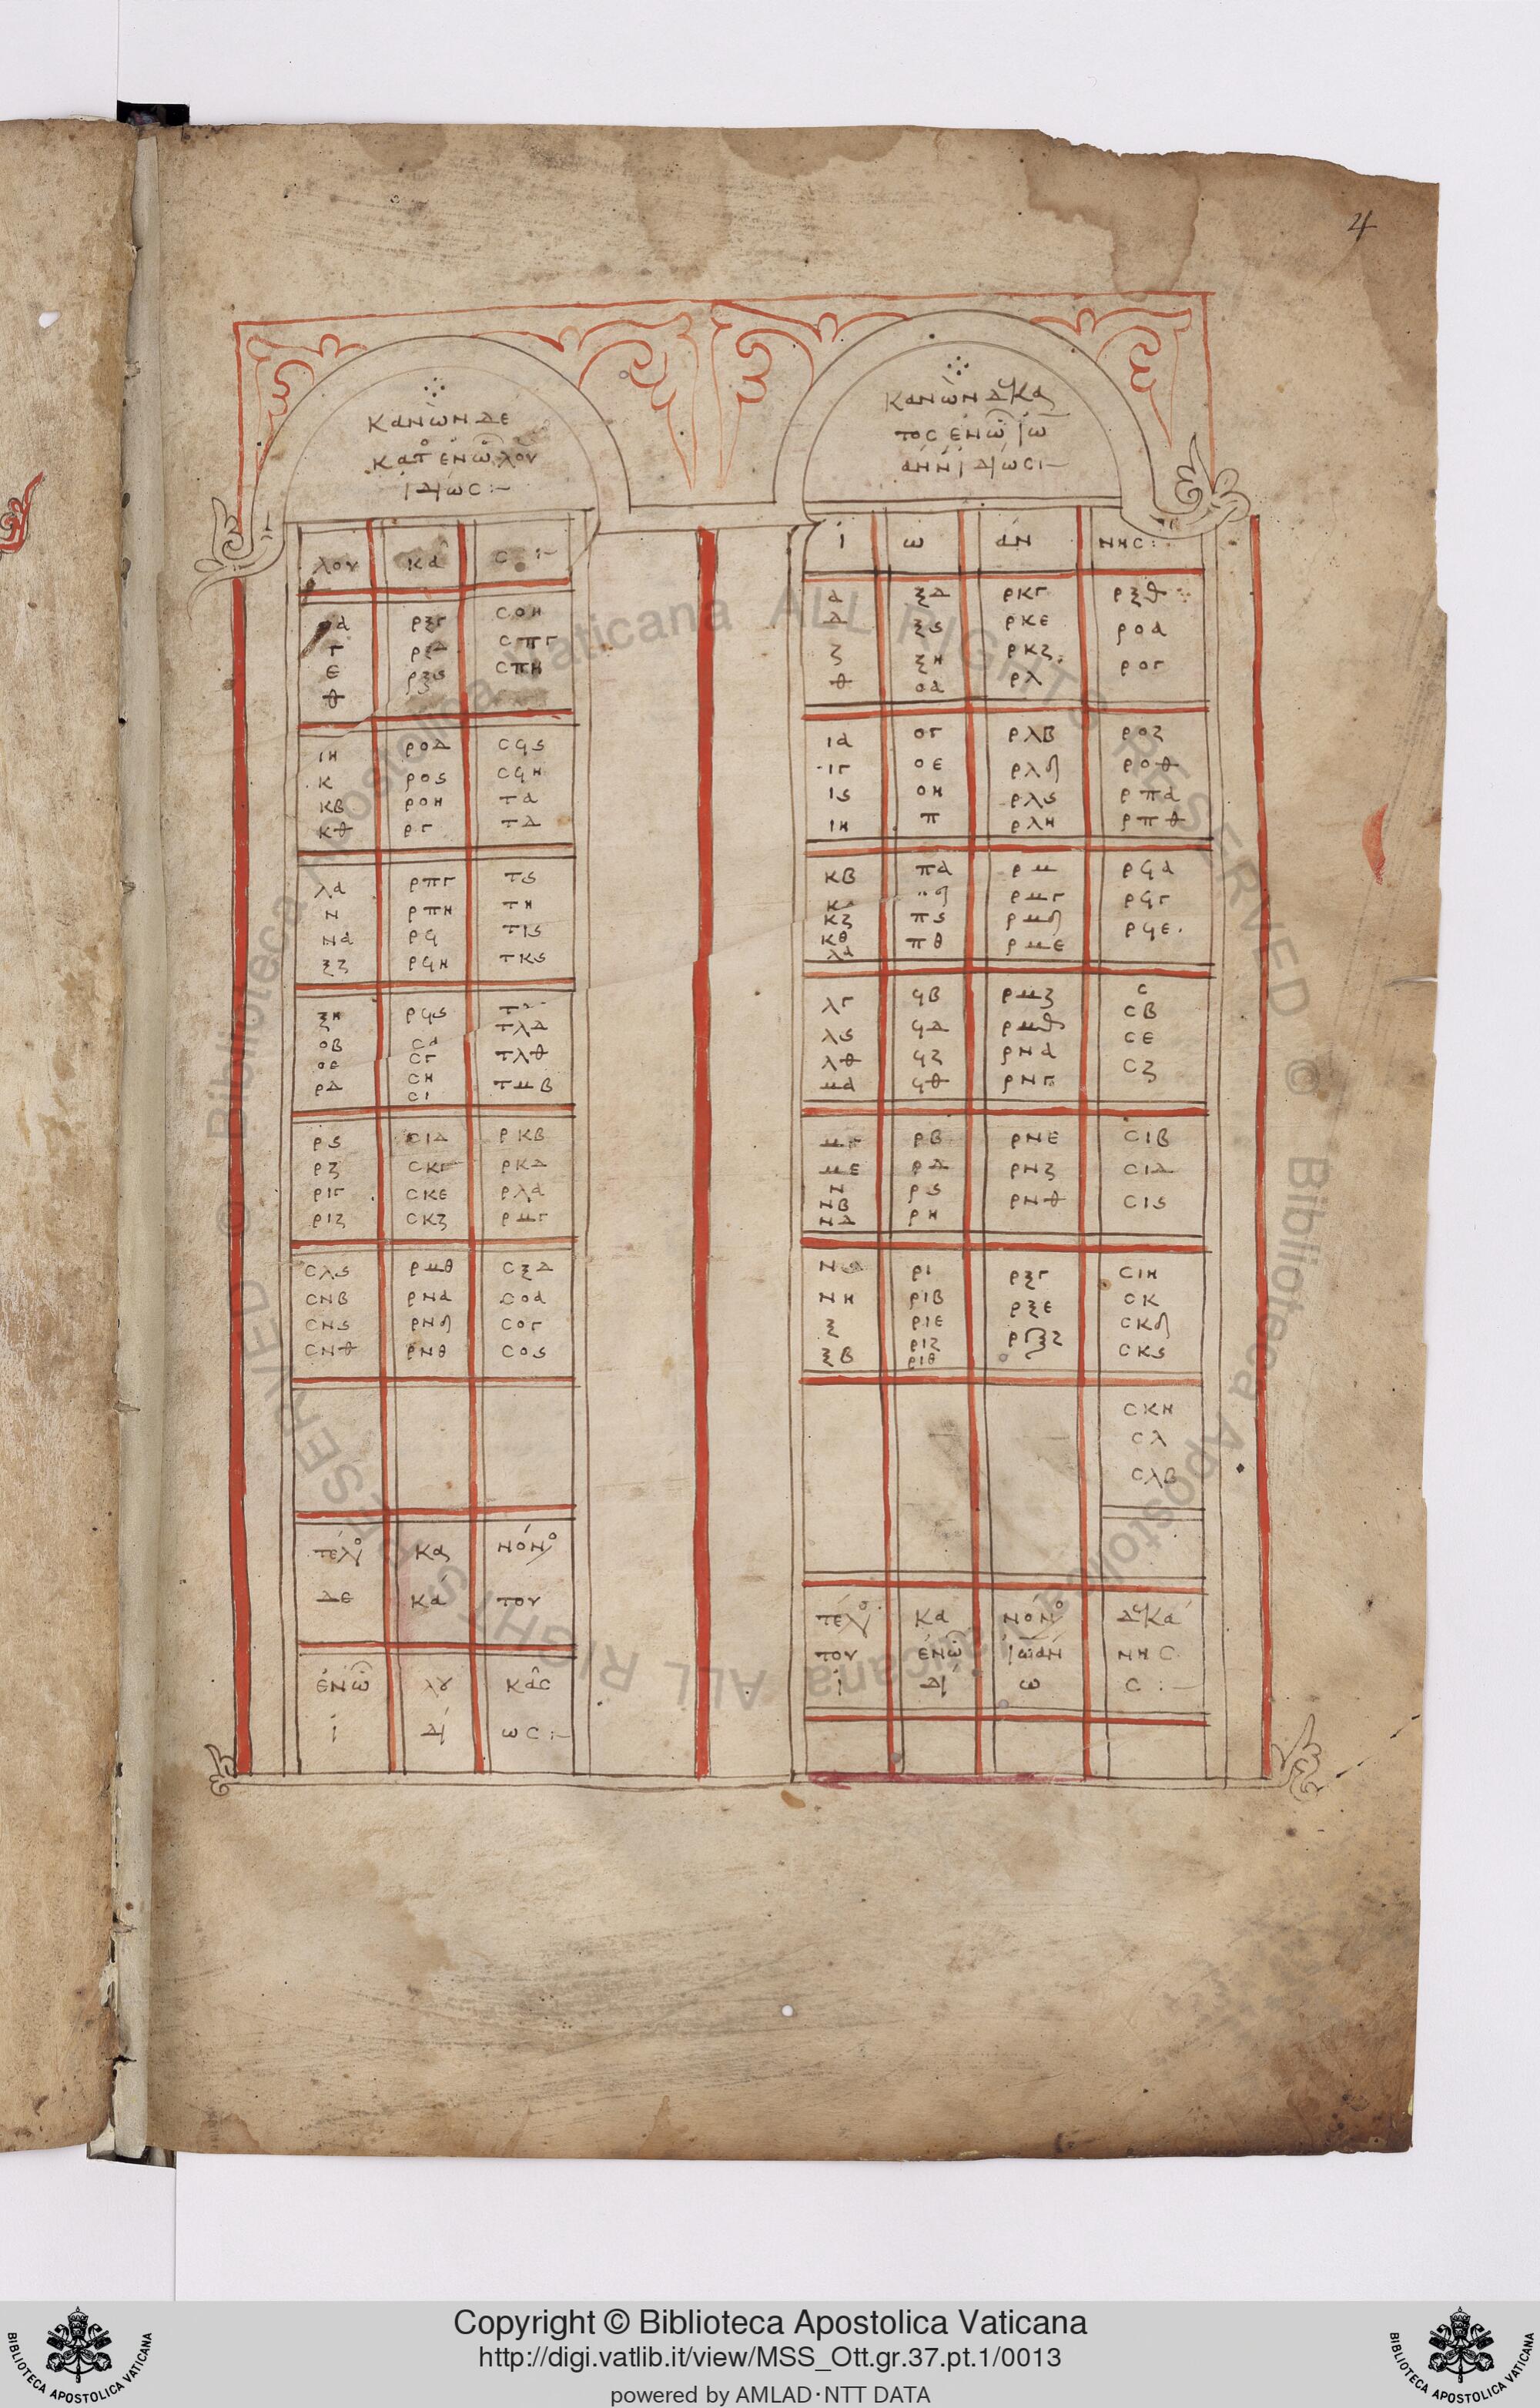 4
κανὼν δε
κατ ενω λου
ιδιως :–
λου κα ς :–
α ρξγ σοη
γ ρξδ σπγ
ε ρξς σπη
θ
ιη ροδ σϙς
κ ρος σϙη
κβ ροη τα
κθ ργ τδ
λα ρπγ τς
ν ρπη τη
να ρϙ τις
ξζ ρϙη τκς
ξη ρϙς
οβ σα τλδ
οε σγ τλθ
ρδ ση τμβ
σι
ρς σιδ ρκβ
ρζ σκγ ρκδ
ριγ σκε ρλα
ριζ σκζ ρμγ
σλς ρμθ σξδ
σνβ ρνα σοα
σνς ρνδ σογ
σνθ ρνθ σος
τέλο κα νόνο
δε κά του
ἐνω λυ κας
ἰ δί ως :–
κανὼν δκα
τος ενω ιω
ανν ιδίως :–
ἰ ω άν νης :
α ξδ ρκγ ρξθ
δ ξς ρκε ροα
ζ ξη ρκζ ρογ
θ οα ρλ
ια ογ ρλβ ροζ
ιγ οε ρλδ ροθ
ις οη ρλς ρπα
ιη π ρλη ρπθ
κβ πα ρμ ρϙα
ρμγ ρϙγ
κζ πς ρμδ ρϙε
κθ πθ ρμε
λα
λγ ϙβ ρμζ σ
λς ϙδ ρμθ σβ
λθ ϙζ ρνα σε
μα ϙθ ρνγ σζ
μγ ρβ ρνε σιβ
με ρδ ρνζ σιδ
ν ρς ρνθ σις
νβ ρη
νδ
ρι ρξγ σιη
νη ριβ ρξε σκ
ξ ριε ρξζ σκδ
ξβ ριζ σκς
ριθ
σκη
σλ
σλβ
τέλο κα νόνο δκα
του ἐνω ἰωάν νης
ἰ δί ω ς :–
Copyright © Biblioteca Apostolica Vaticana
http://digi.vatlib.it/view/MSS_Ott.gr.37.pt.1/0013
powered by AMLAD·NTT DATA
BIBLIOTECA APOSTOLICA VATICANA
BIBLIOTECA APOSTOLICA VATICANA
© Biblioteca Apostolica Vaticana ALL RIGHTS RESERVED
© Biblioteca Apostolica Vaticana ALL RIGHTS RESERVED